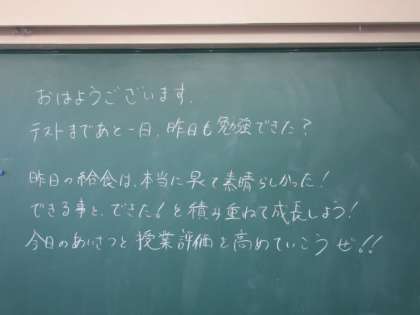 おはようございます.
テストまであと一日, 昨日も勉強できた?
昨日の給食は, 本当に早て素晴らしかった!
できる事と, できた!を積み重ねて成長しよう!
今日のあいさつと授業評価を高めていこうぜ!!